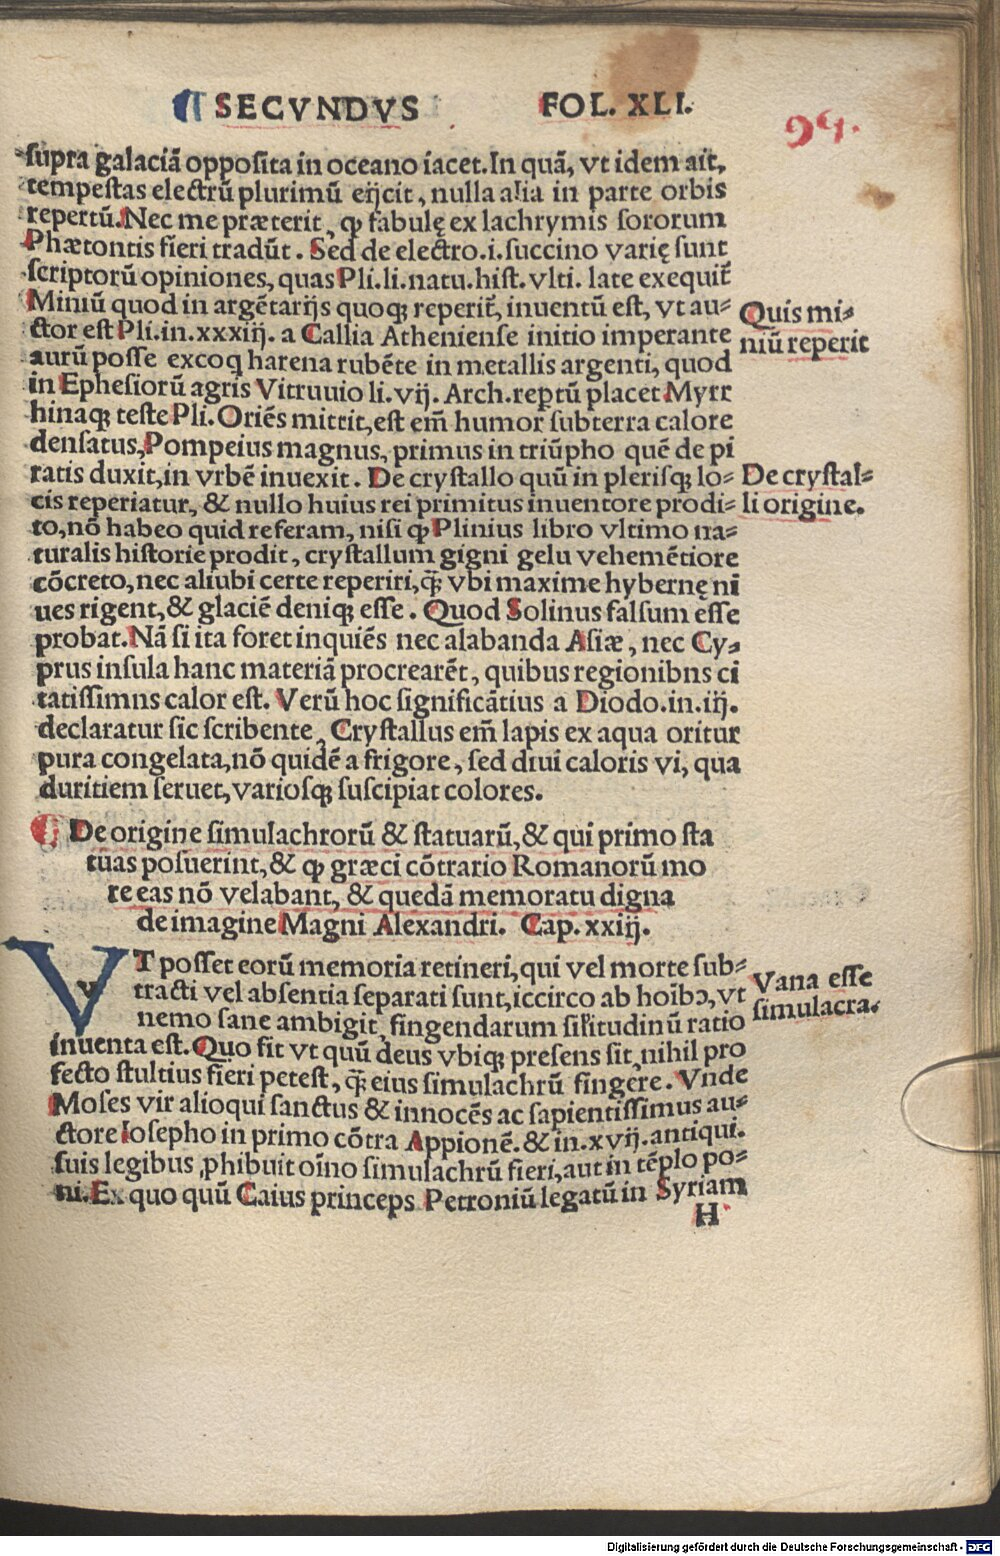 ¶ SECVNDVS FOL. XLI.
94.
supra galaciã opposita in oceano iacet. In quã, vt idem ait,
tempestas electrũ plurimũ eijcit, nulla alia in parte orbis
repertũ. Nec me præterit, ꝙ fabulę ex lachrymis sororum
Phætontis fieri tradũt. Sed de electro .i. succino varię sunt
scriptorũ opiniones, quas Pli. li. natu. hist. vlti. late exequit᷑
Miniũ quod in argẽtarijs quoqꝫ reperit᷑, inuentũ est, vt au-
ctor est Pli. in. xxxiij. a Callia Atheniense initio imperante
aurũ posse excoq harena rubẽte in metallis argenti, quod
in Ephesiorũ agris Vitruuio li. vij. Arch. reptũ placet Myrr
hinaqꝫ teste Pli. Oriẽs mittit, est em̃ humor subterra calore
densatus, Pompeius magnus, primus in triũpho quẽ de pi
ratis duxit, in vrbẽ inuexit. De crystallo quũ in plerisqꝫ lo-
cis reperiatur, & nullo huius rei primitus inuentore prodi-
to, nõ habeo quid referam, nisi ꝙ Plinius libro vltimo na-
turalis historie prodit, crystallum gigni gelu vehemẽtiore
cõcreto, nec aliubi certe reperiri, q̃ꝫ vbi maxime hybernę ni
ues rigent, & glaciẽ deniqꝫ esse. Quod Solinus falsum esse
probat. Nã si ita foret inquiẽs nec alabanda Asiæ, nec Cy-
prus insula hanc materiã procrearẽt, quibus regionibns ci
tatissimns calor est. Verũ hoc significãtius a Diodo. in. iij.
declaratur sic scribente, Crystallus em̃ lapis ex aqua oritur
pura congelata, nõ quidẽ a frigore, sed diui caloris vi, qua
duritiem seruet, variosqꝫ suscipiat colores.
Quis mi-
niũ reperit
De crystal-
li origine.
¶ De origine simulachrorũ & statuarũ, & qui primo sta
tuas posuerint, & ꝙ græci cõtrario Romanorũ mo
re eas nõ velabant, & quedã memoratu digna
de imagine Magni Alexandri. Cap. xxiij.
VT posset eorũ memoria retineri, qui vel morte sub-
tracti vel absentia separati sunt, iccirco ab hoĩbꝰ, vt
nemo sane ambigit, fingendarum sil̃itudinũ ratio
inuenta est. Quo fit vt quũ deus vbiqꝫ presens sit, nihil pro
fecto stultius fieri petest, q̃ꝫ eius simulachrũ fingere. Vnde
Moses vir alioqui sanctus & innocẽs ac sapientissimus au-
ctore Iosepho in primo cõtra Appionẽ. & in. xvij. antiqui.
suis legibus ꝓhibuit oĩno simulachrũ fieri, aut in tẽplo po-
ni. Ex quo quũ Caius princeps Petroniũ legatũ in Syriam
Vana esse
simulacra.
H
Digitalisierung gefördert durch die Deutsche Forschungsgemeinschaft - DFG